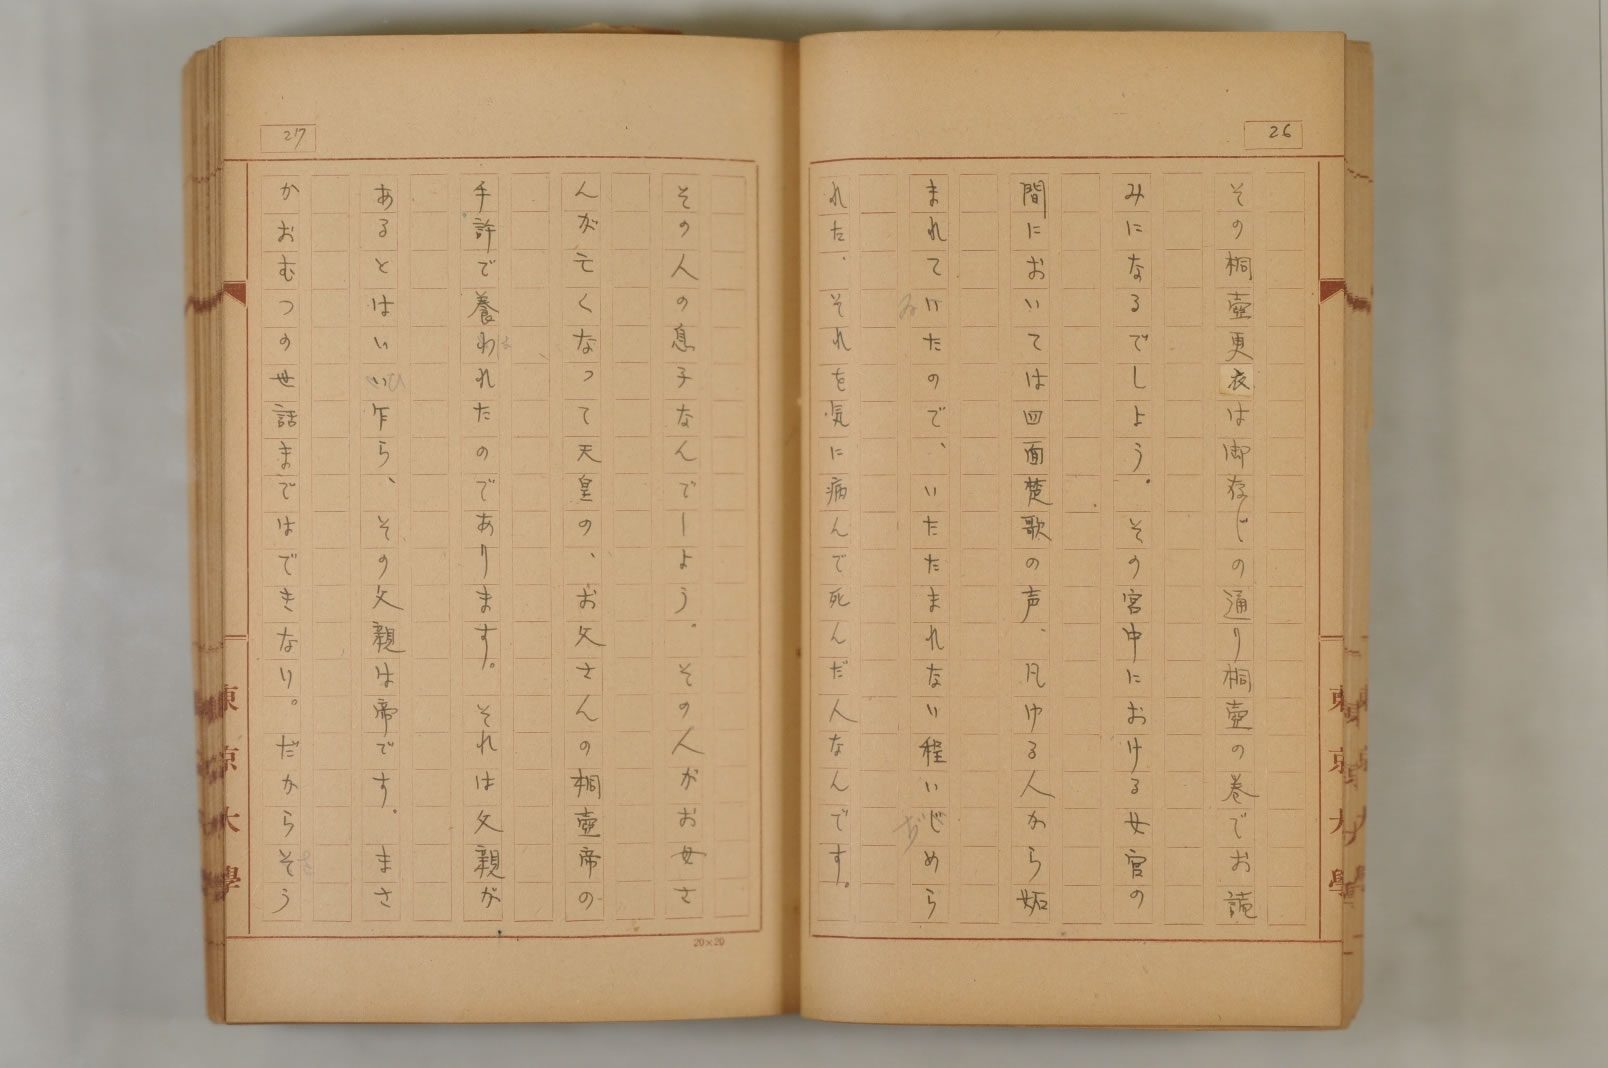 26
その桐壺更衣は御存じの通り桐壺の巻でお読
みになるでしよう。その宮中における女官の
間においては四面楚歌の声、凡ゆる人から妬
まれていたので、いたたまれない程いじめら
み
ぢ
れた、それを気に病んで死んだ人なんです。
東京大學
27
その人の息子なんでしよう。その人がお母さ
んが亡くなって天皇の、お父さんの桐壺帝の
手許で養われたのであります。それは父親が
は
あるとはいい乍ら、その父親は帝です。まさ
ひ
かおむつの世話まではできない。だからそう
さ
東京大學
20×20